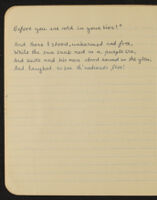 Before you are old in your bier!"
And there I stood, unharmed and free,
While the sun sank red in a purple sea,
And and his men stood round in the glen,
And laughed to see the